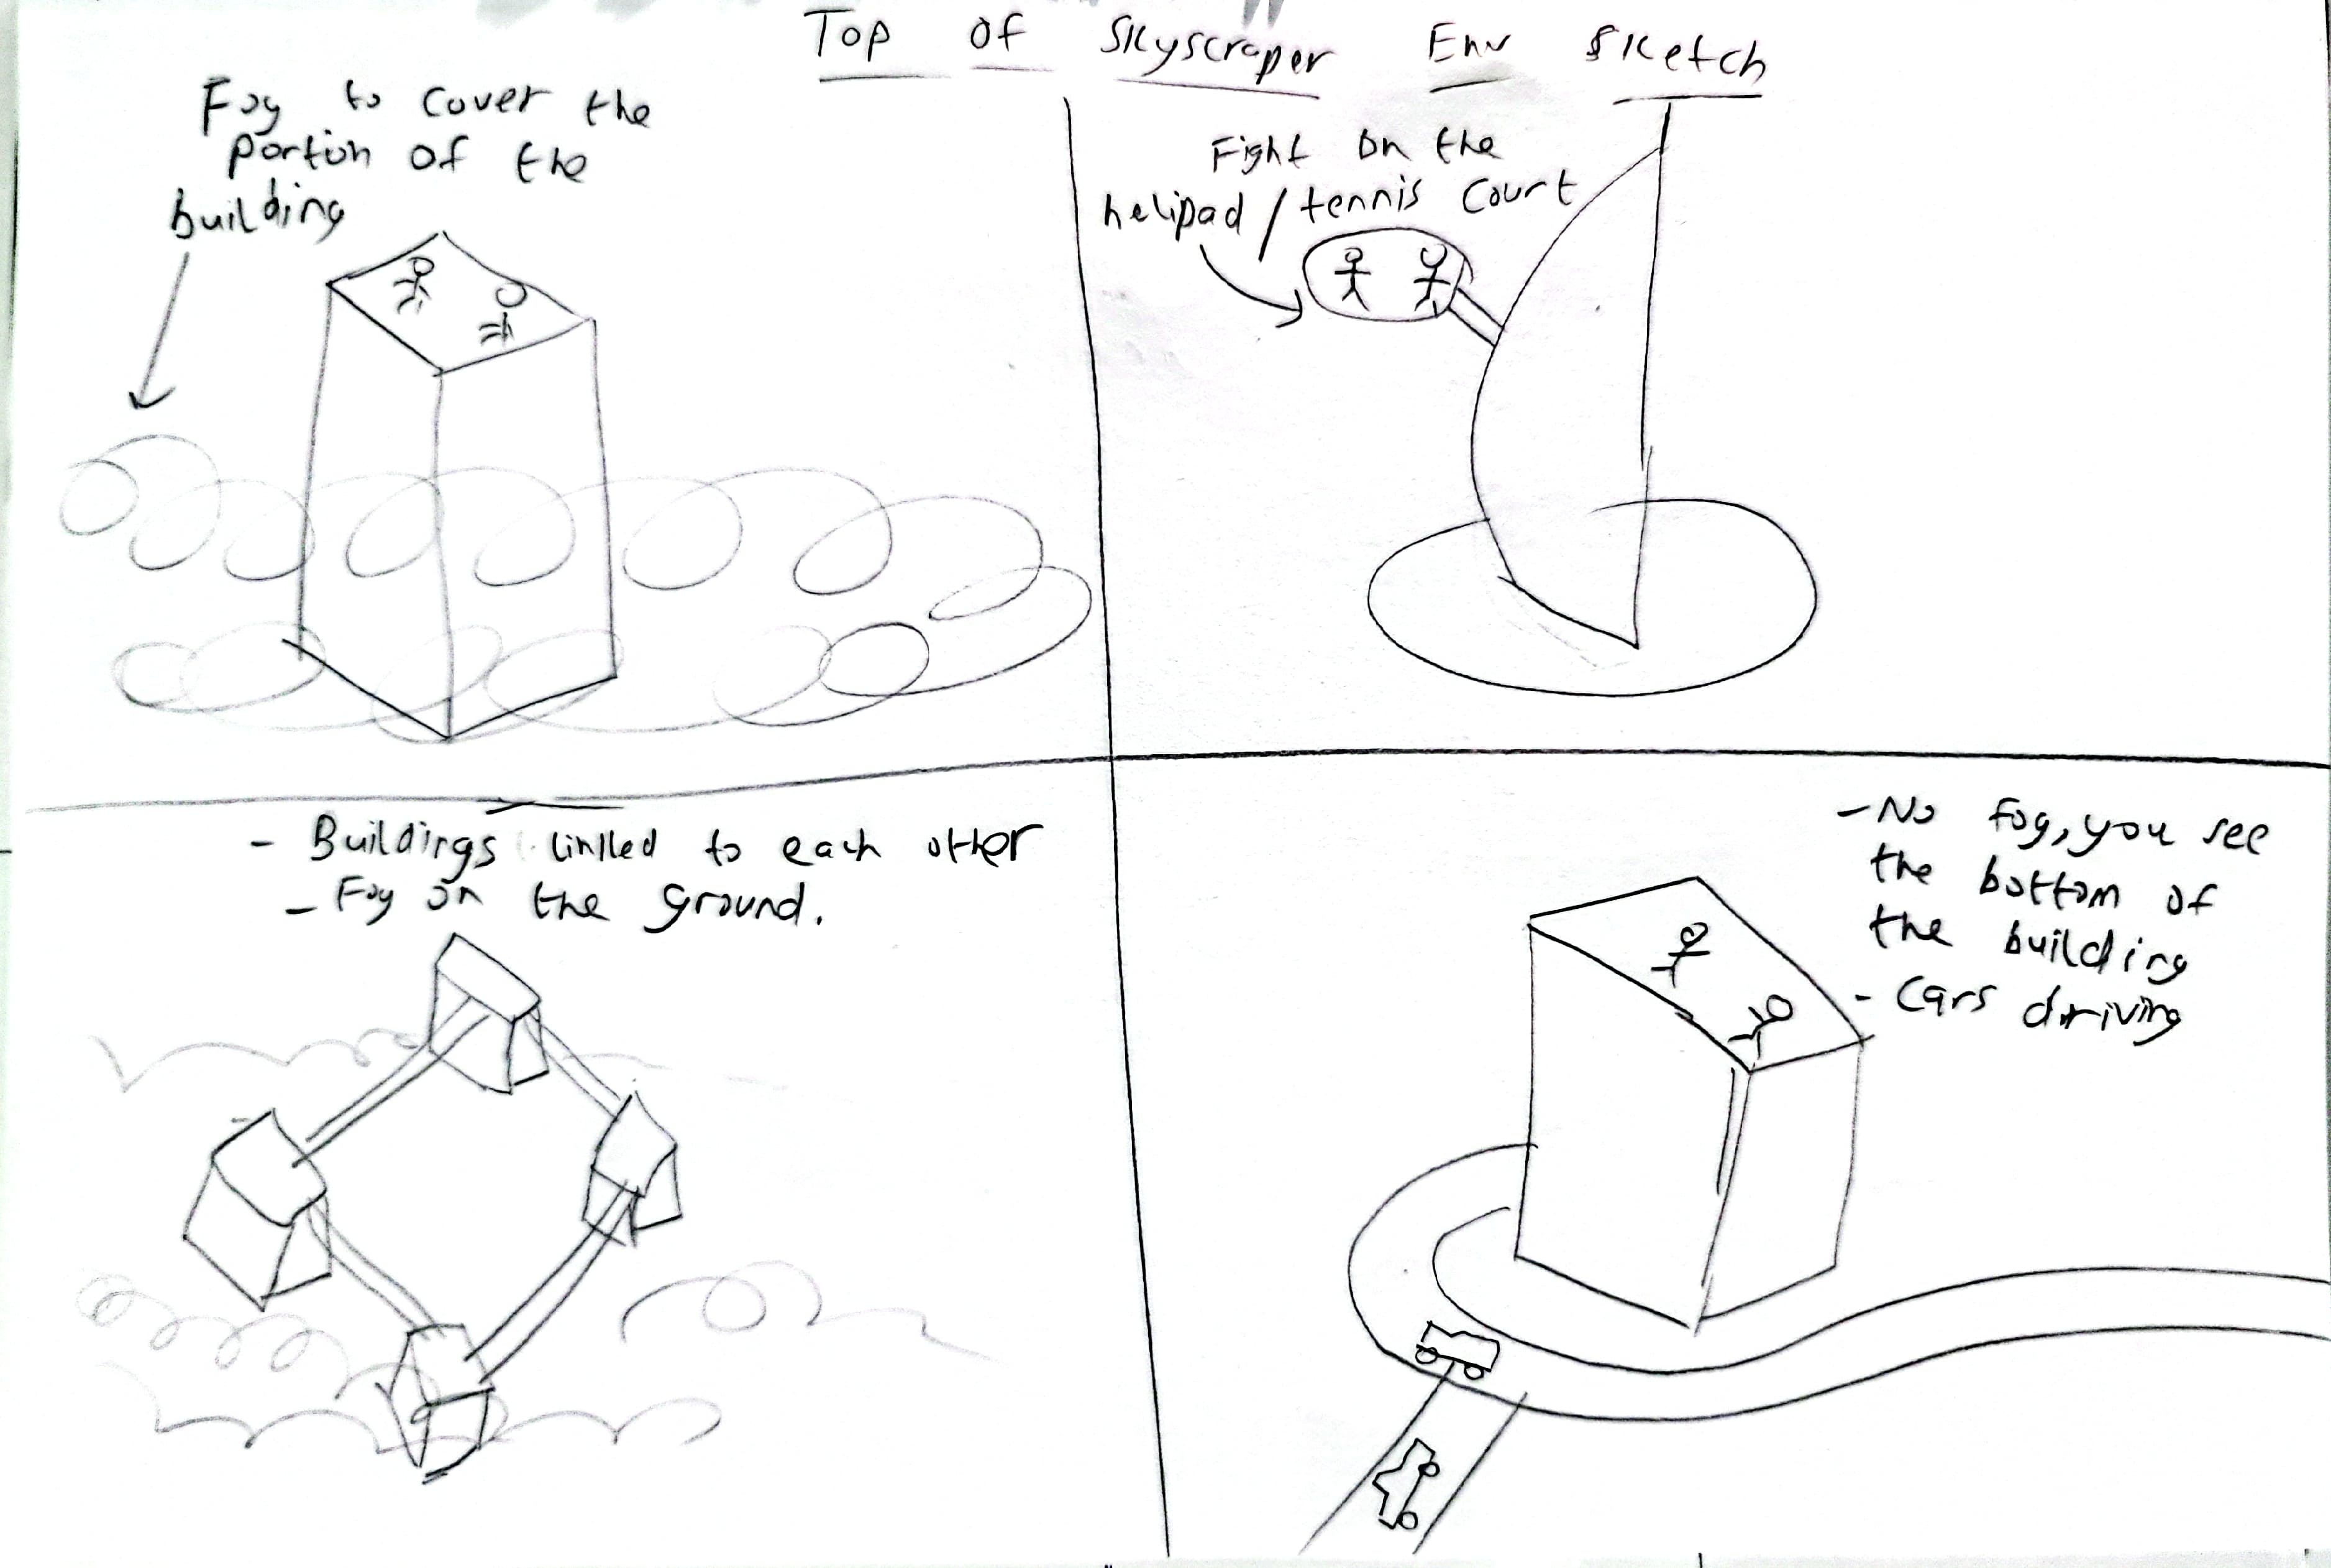 Top of Skyscraper Env Sketch
Fog to cover the
portion of the
building
Fight on the
helipad / tennis court
- Buildings linked to each other
- Fog on the ground.
- No fog, you see
the bottom of
the building
- Cars driving